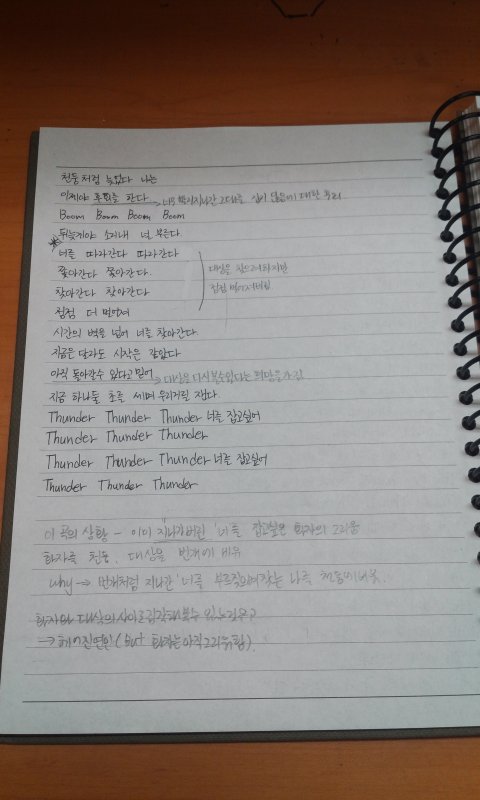 천둥처럼 늦었다 나는
이제야 후회를 한다 → 너무 빨리 지나간 그대를 잡지 않음에 대한 후회
Boom Boom Boom Boom
뒤늦게야 소리내 널 부른다
너를 따라간다 따라간다
쫓아간다 쫓아간다.
찾아간다 찾아간다
대상을 찾으려하지만
점점 멀어져버림
점점 더 멀어져
시간의 벽을 넘어 너를 찾아간다.
지금은 달라도 시작은 같았다
아직 돌아갈 수 있다고 믿어 → 대상을 다시 볼 수 있다는 희망을 가짐
지금 하나둘 초를 세며 우리거릴 잰다.
Thunder Thunder Thunder 너를 잡고싶어
Thunder Thunder Thunder
Thunder Thunder Thunder 너를 잡고싶어
Thunder Thunder Thunder
이 곡의 상황 - 이미 지나가버린 '너'를 잡고싶은 화자의 그리움
화자를 천둥, 대상을 번개에 비유
why → 번개처럼 지나간 '너'를 부르짖으며 찾는 나를 천둥에 비유.
화자와 대상의 사이로 짐작해볼수 있는것은?
→ 헤어진 연인 (but 화자는 아직 그리워함).